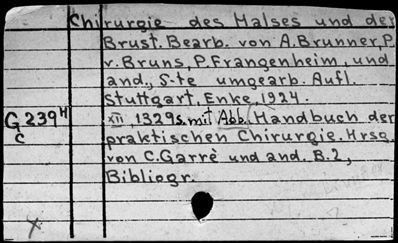 Chirurgie des Halses und der
Brust. Bearb. von A. Brunner, P.
v. Bruns, P. Frangenheim, und
and., 5-te umgearb. Aufl.
Stuttgart, Enke, 1924.
G 239 H
C
XII, 1329 S. mit Abb. (Handbuch der
praktischen Chirurgie. Hrsg.
von C. Garrè und and. B. 2,
Bibliogr.